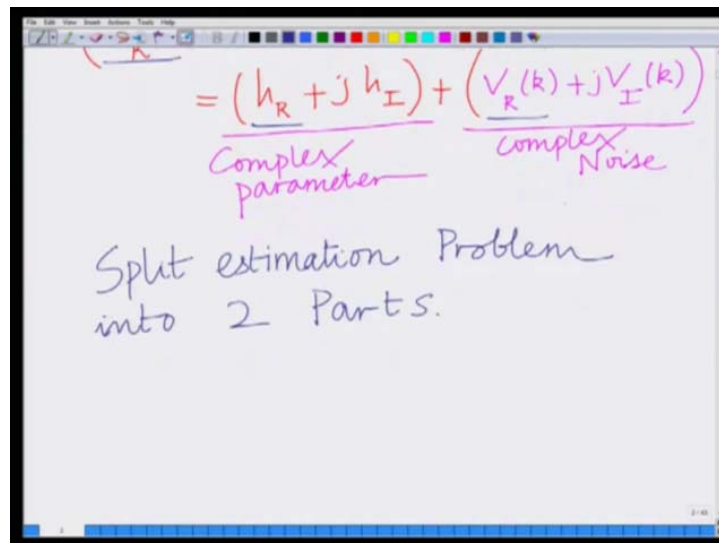 File Edit View Insert Actions Tools Help
= (h_R + j h_I) + (V_R(k) + j V_I(k))
Complex parameter
complex Noise
Split estimation Problem
into 2 Parts.